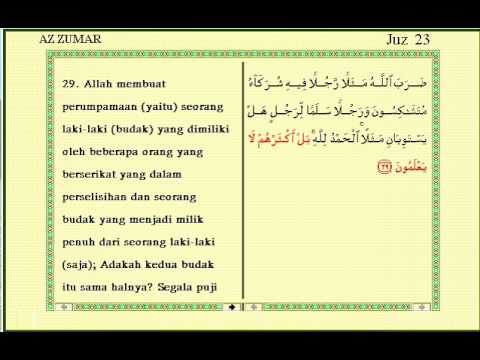 AZ ZUMAR
Juz 23
29. Allah membuat
perumpamaan (yaitu) seorang
laki-laki (budak) yang dimiliki
oleh beberapa orang yang
berserikat yang dalam
perselisihan dan seorang
budak yang menjadi milik
penuh dari seorang laki-laki
(saja); Adakah kedua budak
itu sama halnya? Segala puji
ضَرَبَ ٱللَّهُ مَثَلًا رَّجُلًا فِيهِ شُرَكَآءُ
مُتَشَٰكِسُونَ وَرَجُلًا سَلَمًا لِّرَجُلٍ هَلْ
يَسْتَوِيَانِ مَثَلًا ۚ ٱلْحَمْدُ لِلَّهِ ۚ بَلْ أَكْثَرُهُمْ لَا
يَعْلَمُونَ ﴿٢٩﴾